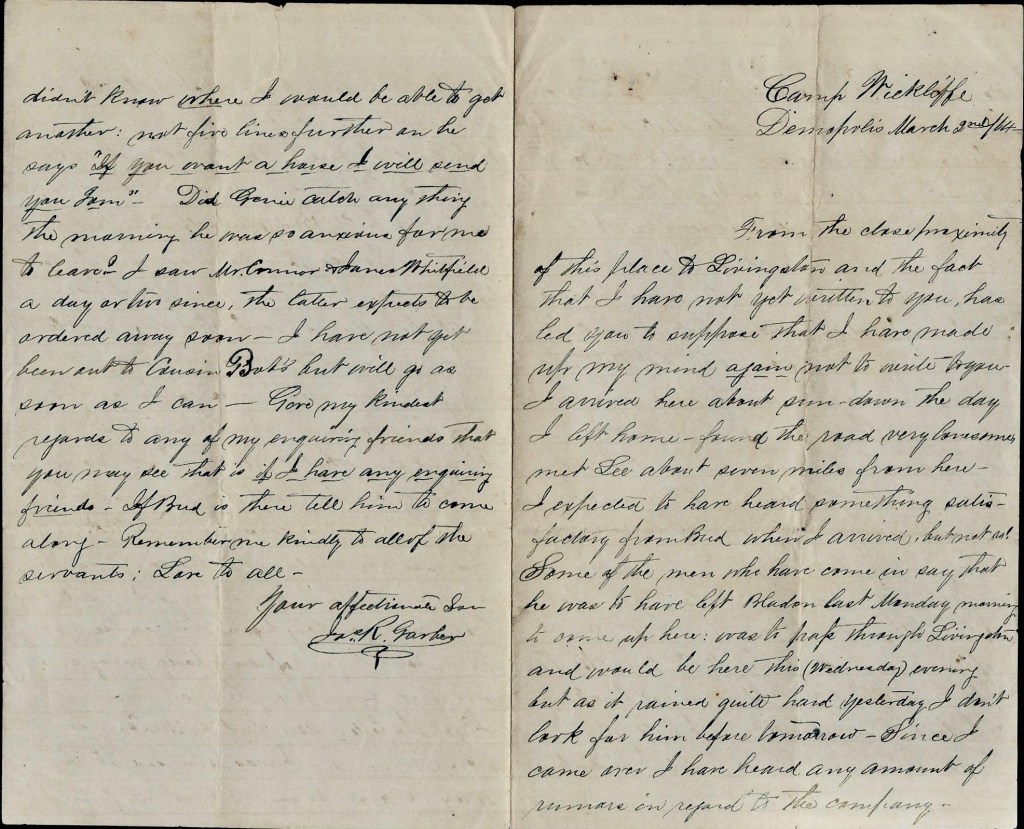 Camp Wickliffe
Demopolis March 2nd/64-
From the close proximity
of this place to Livingston and the fact
that I have not yet written to you, has
led you to suppose that I have made
up my mind again not to write to you-
I arrived here about sun-down the day
I left home - found the road very lonesome,
met Lee about seven miles from here-
I expected to have heard something satis-
factory from Bud when I arrived, but not so!
Some of the men who have come in say that
he was to have left Bladon last Monday morning
to come up here: was to pass through Livingston
and would be here this (Wednesday) evening
but as it rained quite hard yesterday, I don't
look for him before tomorrow - Since I
came over I have heard any amount of
rumors in regard to the company-
didn't know where I would be able to get
another: not five lines further on he
says "If you want a horse I will send
you Tom" - Did Genie catch any thing
the morning he was so anxious for me
to leave? I saw Mr. Connor & James Whitfield
a day or two since, the latter expects to be
ordered away soon - I have not yet
been out to Cousin Bob's but will go as
soon as I can - Give my kindest
regards to any of my enquiring friends that
you may see that is if I have any enquiring
friends - If Bud is there tell him to come
along - Remember me kindly to all of the
servants; Love to all -
Your affectionate Son
Jas. R. Garber